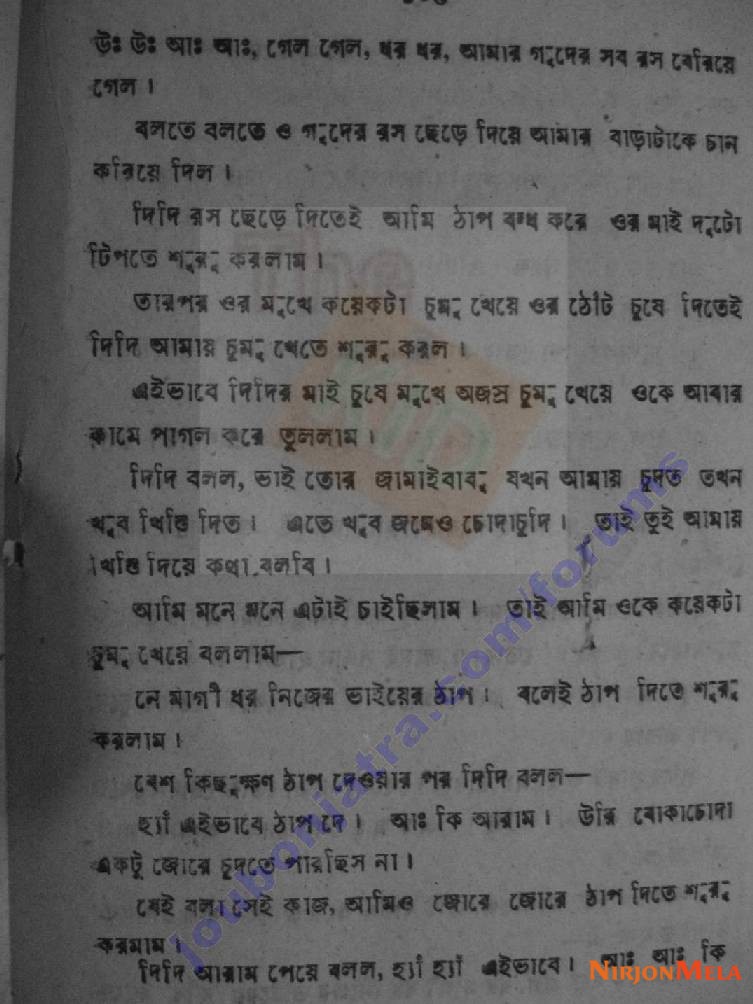 উঃ উঃ আঃ আঃ, গেল গেল, ধর ধর, আমার গুদের সব রস বেরিয়ে
গেল ।
বলতে বলতে ও গুদের রস ছেড়ে দিয়ে আমার বাড়াটাকে চান
করিয়ে দিল ।
দিদি রস ছেড়ে দিতেই আমি ঠাপ বন্ধ করে ওর মাই দুটো
টিপতে শুরু করলাম ।
তারপর ওর মুখে কয়েকটা চুমু খেয়ে ওর ঠোঁট চুষে দিতেই
দিদি আমায় চুমু খেতে শুরু করল ।
এইভাবে দিদির মাই চুষে মুখে অজস্র চুমু খেয়ে ওকে আবার
কামে পাগল করে তুললাম ।
দিদি বলল, ভাই তোর জামাইবাবু যখন আমায় চুদত তখন
খুব খিস্তি দিত । এতে খুব জমেও চোদাচুদি । তাই তুই আমায়
খিস্তি দিয়ে কথা বলবি ।
আমি মনে মনে এটাই চাইছিলাম । তাই আমি ওকে কয়েকটা
চুমু খেয়ে বললাম—
নে মাগী ধর নিজের ভাইয়ের ঠাপ । বলেই ঠাপ দিতে শুরু
করলাম ।
বেশ কিছুক্ষণ ঠাপ দেওয়ার পর দিদি বলল—
হ্যাঁ এইভাবে ঠাপ দে । আঃ কি আরাম । উরি বোকাচোদা
একটু জোরে চুদতে পারছিস না ।
যেই বলা সেই কাজ, আমিও জোরে জোরে ঠাপ দিতে শুরু
করলাম ।
দিদি আরাম পেয়ে বলল, হ্যাঁ হ্যাঁ এইভাবে । আঃ আঃ কি
joubonjatra.com/forums
NIRJONMELA